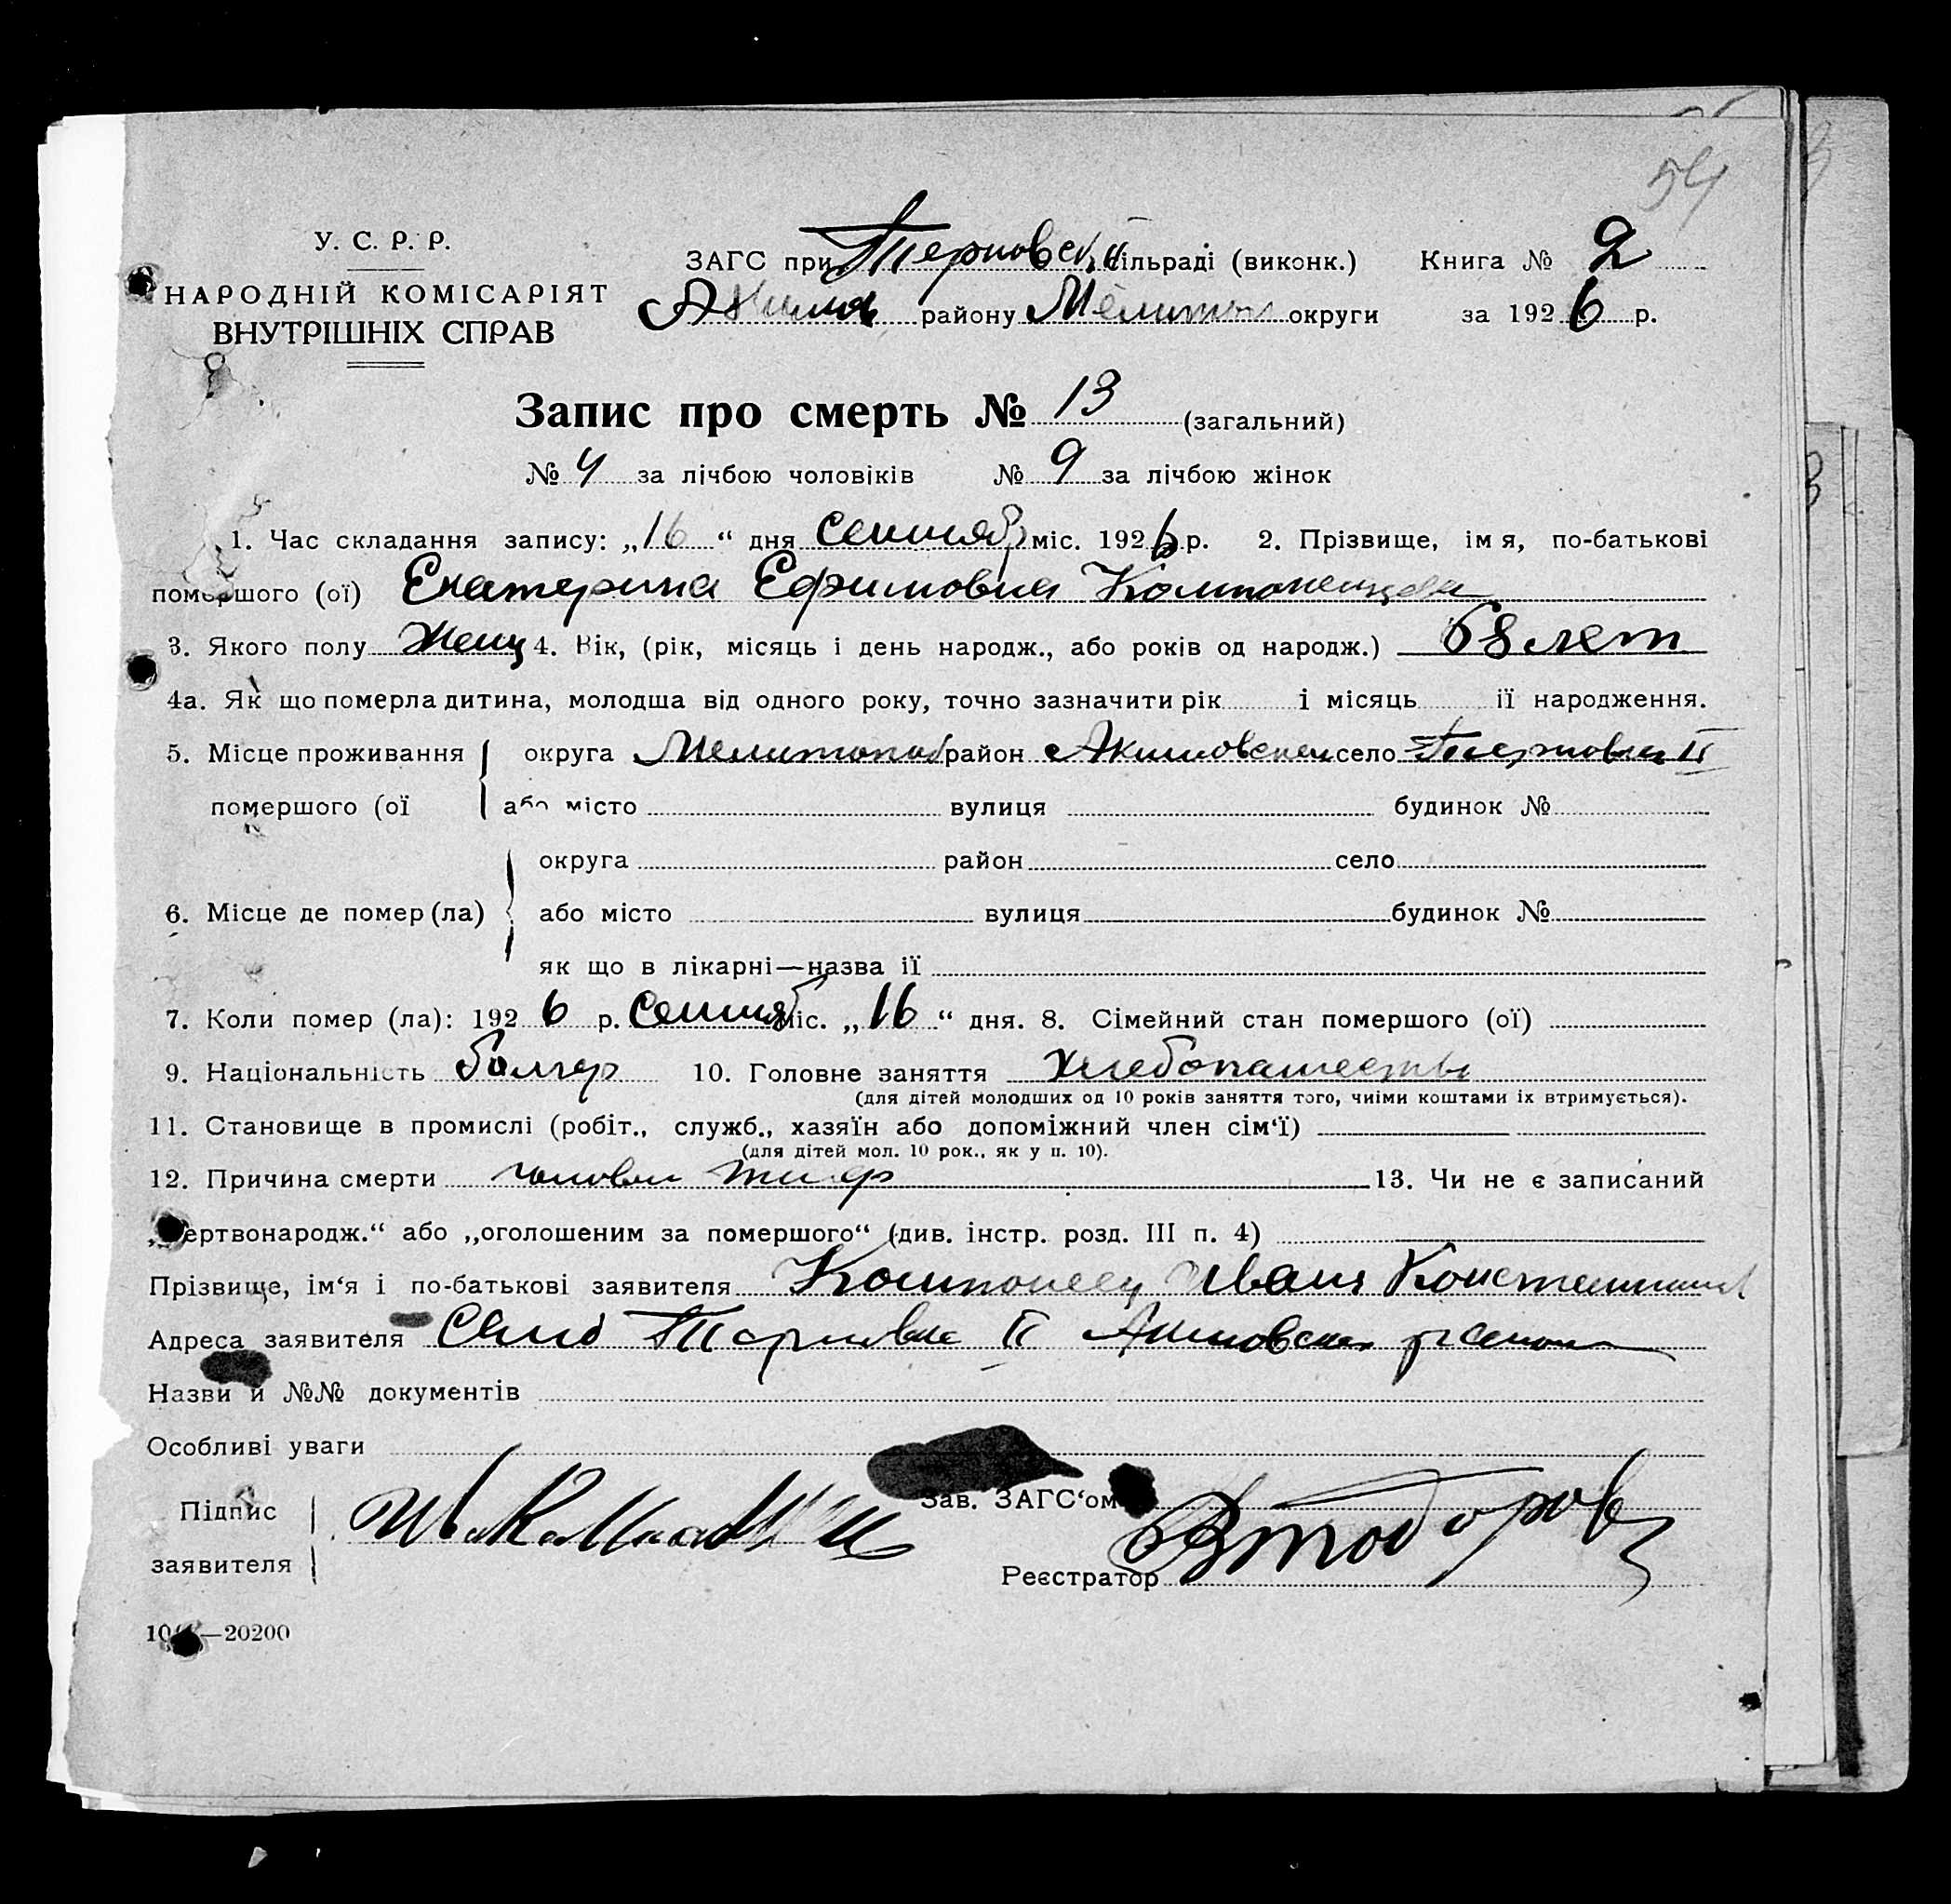 54
У. С. Р. Р.
НАРОДНІЙ КОМІСАРІЯТ
ВНУТРІШНІХ СПРАВ
ЗАГС при Терновск. сільраді (виконк.) Книга № 2
Акимов. району Мелитоп округи за 1926 р.
Запис про смерть № 13 (загальний)
№ 4 за лічбою чоловіків № 9 за лічбою жінок
1. Час складання запису: „16“ дня сентяб міс. 1926 р. 2. Прізвище, ім я, по-батькові
помершого (ої) Екатерина Ефимовна
3. Якого полу Женщ 4. Вік, (рік, місяць і день народж., або років од народж.) 68 лет
4а. Як що померла дитина, молодша від одного року, точно зазначити рік і місяць її народження.
5. Місце проживання округа Мелитопол район Акимовском село Терновка II
помершого (ої або місто вулиця будинок №
округа район село
6. Місце де помер (ла) або місто вулиця будинок №
як що в лікарні—назва її
7. Коли помер (ла): 1926 р. Сентяб міс. „16“ дня. 8. Сімейний стан помершого (ої)
9. Національність болгар 10. Головне заняття хлебопашеств
(для дітей молодших од 10 років заняття того, чиїми коштами їх втримується).
11. Становище в промислі (робіт., служб., хазяїн або допоміжний член сім‘ї)
(для дітей мол. 10 рок., як у п. 10).
12. Причина смерти тиф 13. Чи не є записаний
„мертвонародж.“ або „оголошеним за помершого“ (див. інстр. розд. III п. 4)
Прізвище, ім‘я і по-батькові заявителя Иван Константинов
Адреса заявителя Село Терновка II Акимовском район
Назви й №№ документів
Особливі уваги
Підпис
заявителя
Зав. ЗАГС‘ом
Реєстратор Втодоров
—20200